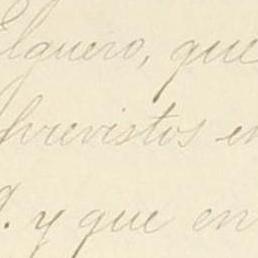 Elguero, que
previstos en
y que en